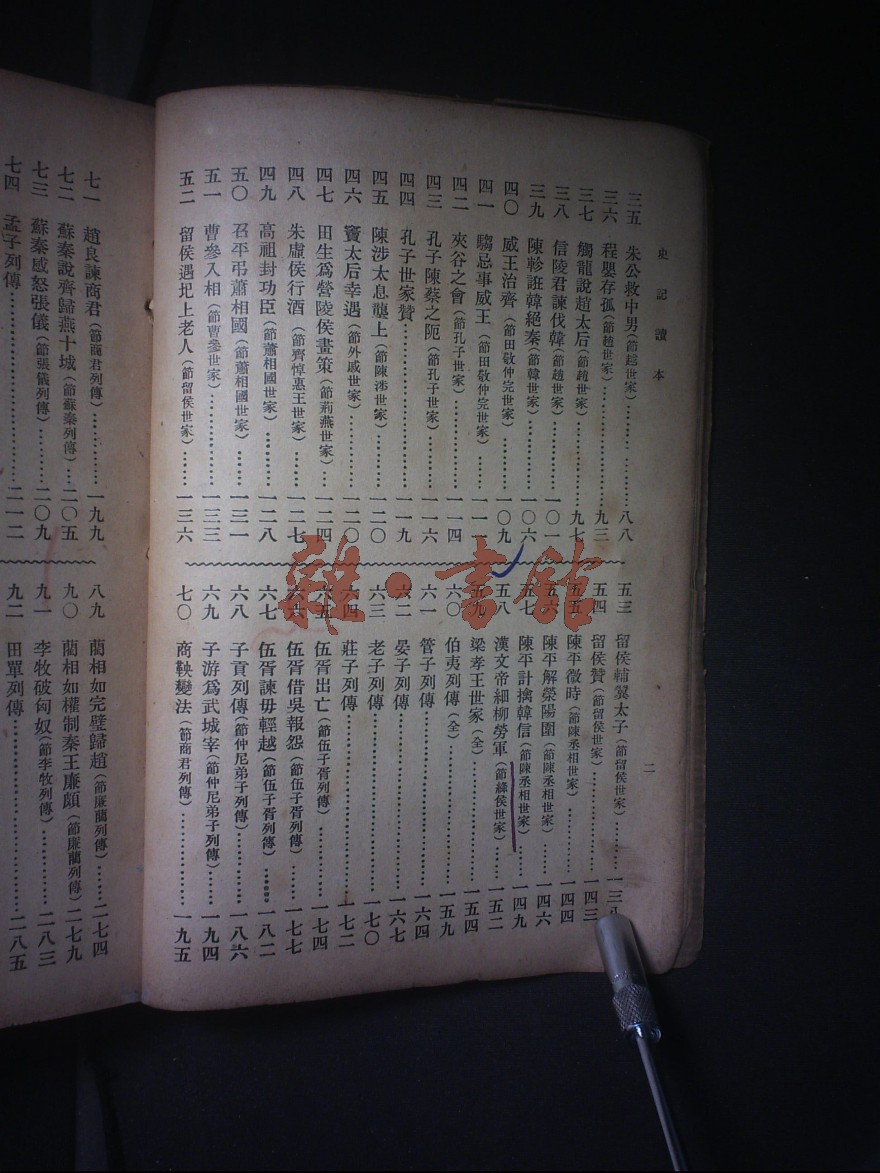 史記讀本
二
三五 朱公救中男(節越世家)……八八
三六 程嬰存孤(節趙世家)……九三
三七 觸龍說趙太后(節趙世家)……九七
三八 信陵君諫伐韓(節趙世家)……一〇一
三九 陳軫誑韓絕秦(節韓世家)……一〇六
四〇 威王治齊(節田敬仲完世家)……一〇九
四一 騶忌事威王(節田敬仲完世家)……一一一
四二 夾谷之會(節孔子世家)……一一四
四三 孔子陳蔡之阨(節孔子世家)……一一六
四四 孔子世家贊……一一九
四五 陳涉太息壟上(節陳涉世家)……一二〇
四六 竇太后幸遇(節外戚世家)……一二〇
四七 田生爲營陵侯畫策(節荊燕世家)…一二四
四八 朱虛侯行酒(節齊悼惠王世家)…一二七
四九 高祖封功臣(節蕭相國世家)……一二八
五〇 召平弔蕭相國(節蕭相國世家)……一三一
五一 曹參入相(節曹參世家)……一三三
五二 留侯遇圯上老人(節留侯世家)……一三六
五三 留侯輔翼太子(節留侯世家)……一三八
五四 留侯贊(節留侯世家)……一四三
五五 陳平微時(節陳丞相世家)……一四四
五六 陳平解滎陽圍(節陳丞相世家)……一四六
五七 陳平計擒韓信(節陳丞相世家)……一四九
五八 漢文帝細柳勞軍(節絳侯世家)……一五二
五九 梁孝王世家(全)……一五四
六〇 伯夷列傳(全)……一五九
六一 管子列傳……一六四
六二 晏子列傳……一六七
六三 老子列傳……一七〇
六四 莊子列傳……一七二
六五 伍胥出亡(節伍子胥列傳)……一七四
六六 伍胥借吳報怨(節伍子胥列傳)……一七七
六七 伍胥諫毋輕越(節伍子胥列傳)……一八二
六八 子貢列傳(節仲尼弟子列傳)……一八六
六九 子游爲武城宰(節仲尼弟子列傳)……一九四
七〇 商鞅變法(節商君列傳)……一九五
七一 趙良諫商君(節商君列傳)……一九九
七二 蘇秦說齊歸燕十城(節蘇秦列傳)…二〇五
七三 蘇秦感怒張儀(節張儀列傳)……二〇九
七四 孟子列傳……二一二
八九 藺相如完璧歸趙(節廉藺列傳)……二七四
九〇 藺相如權制秦王廉頗(節廉藺列傳)二七九
九一 李牧破匈奴(節李牧列傳)……二八三
九二 田單列傳……二八五
雜·書館